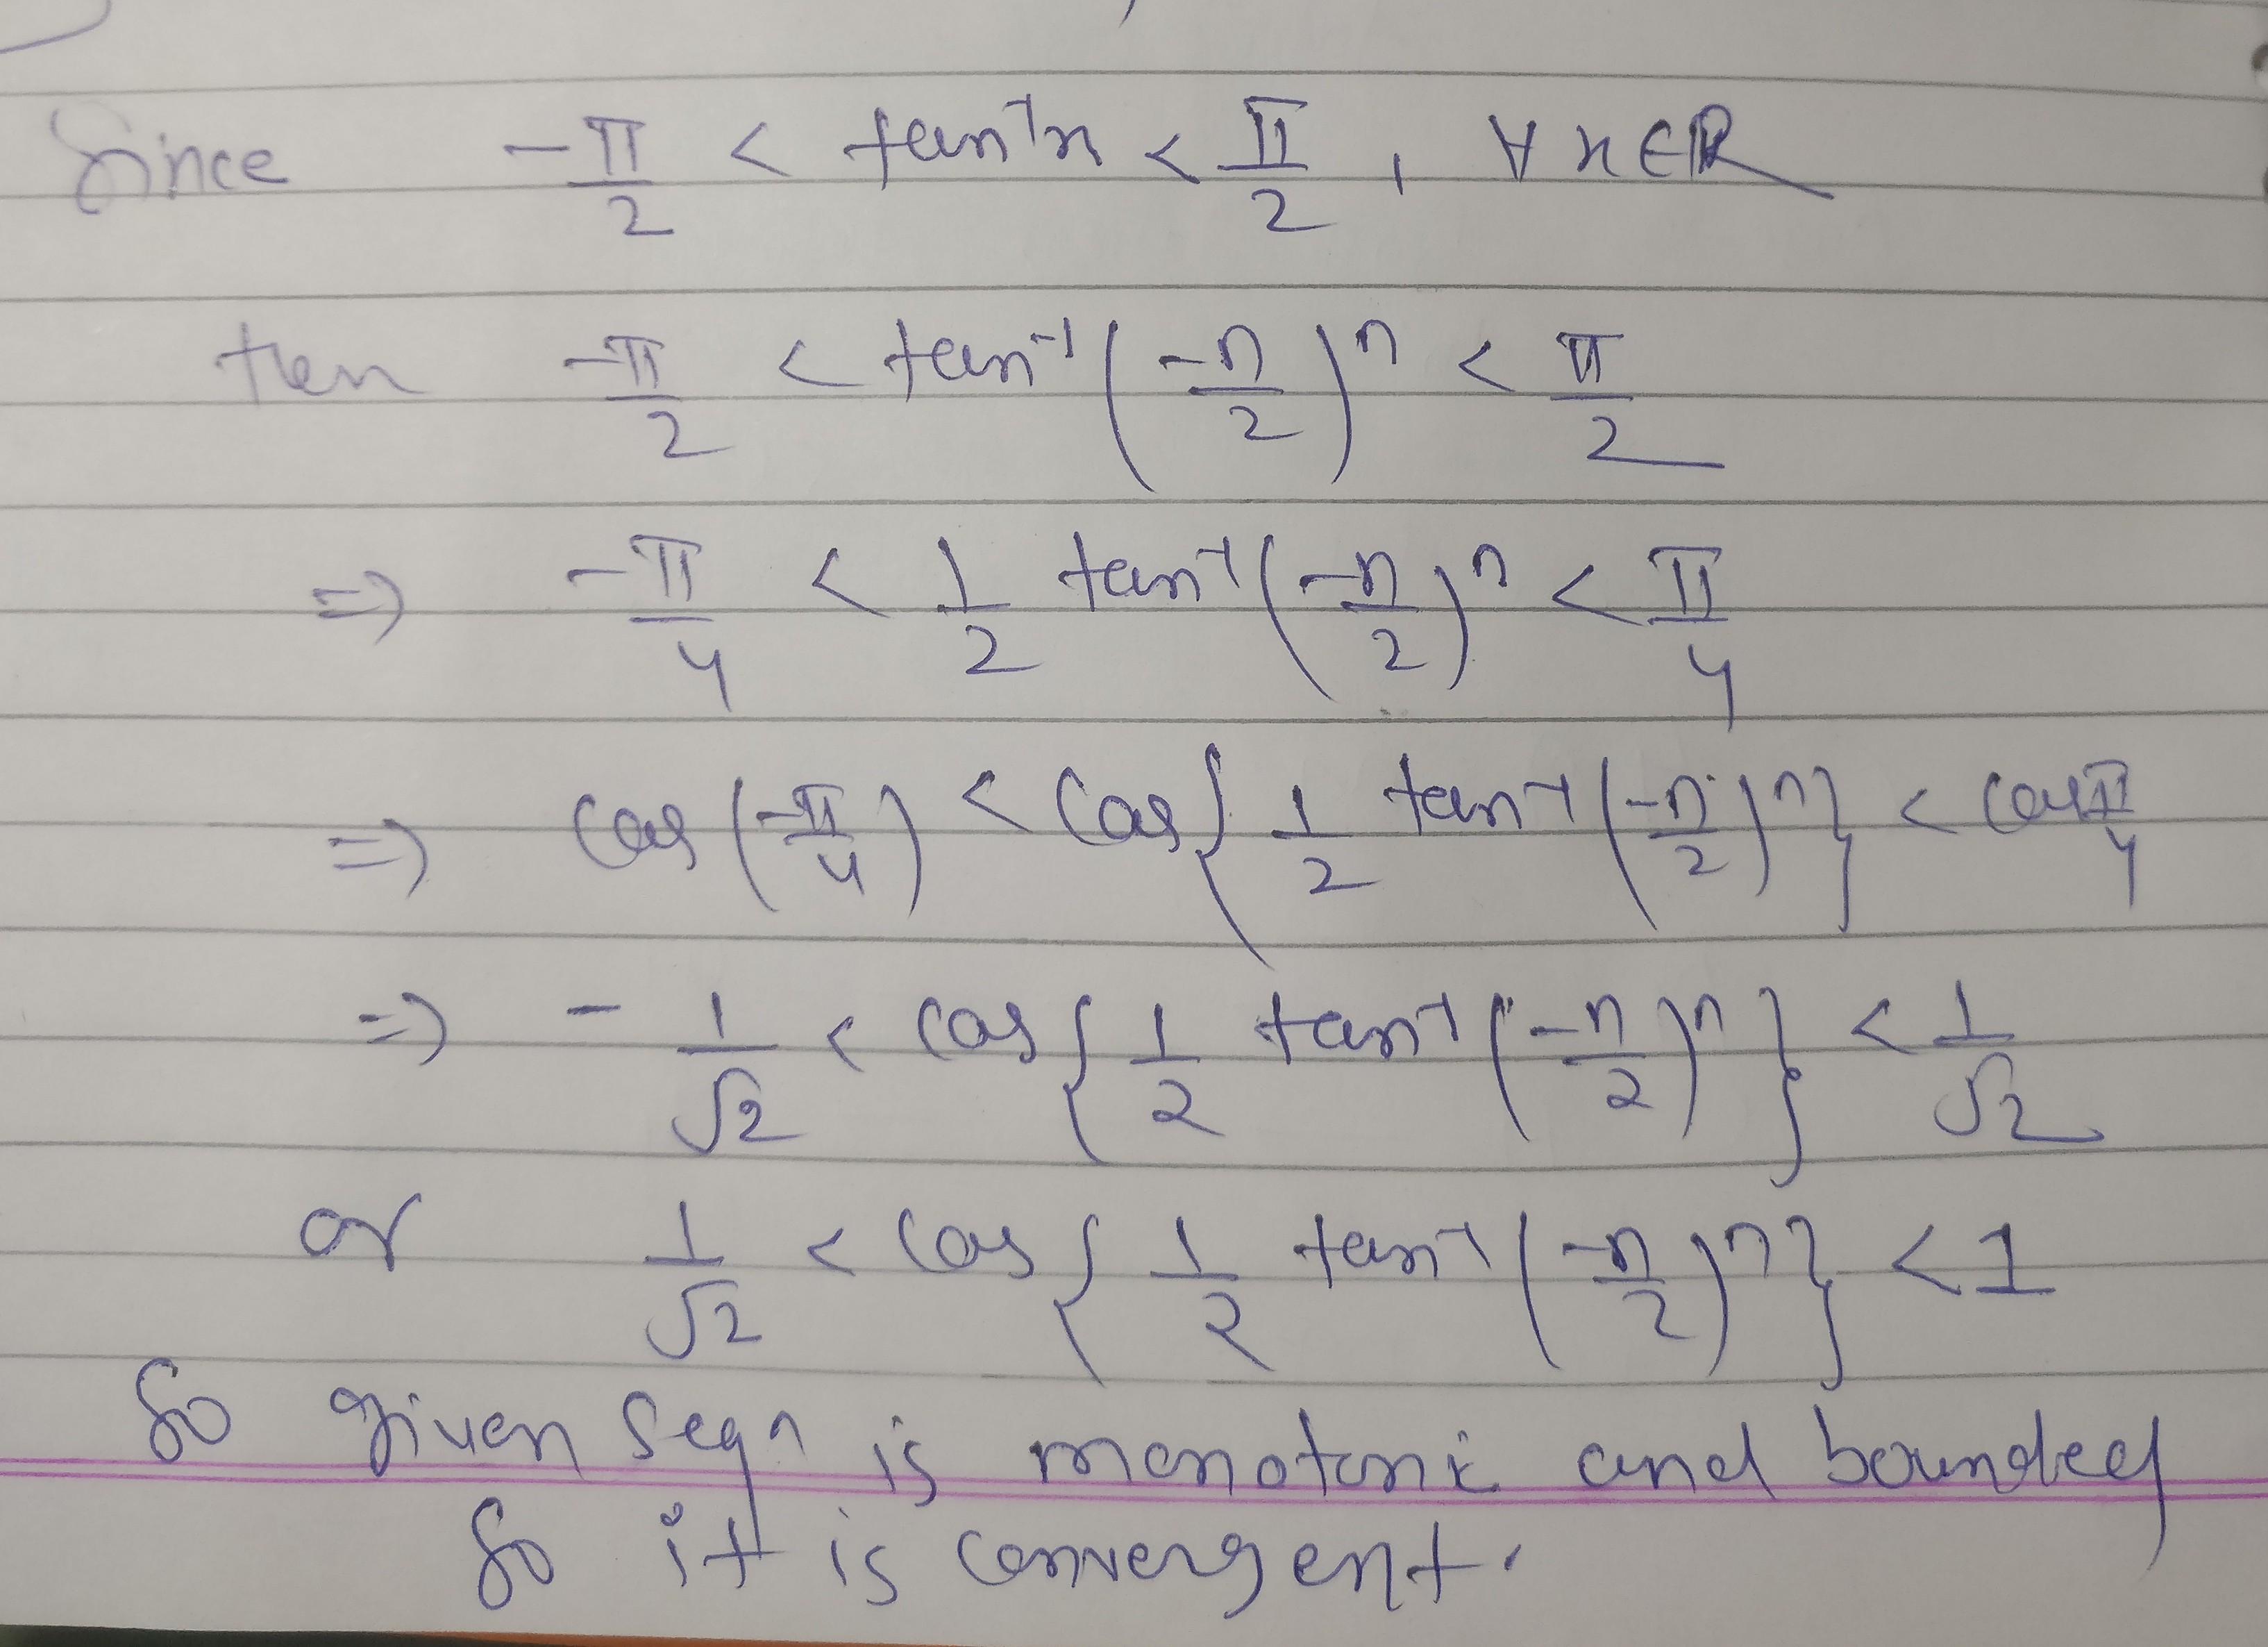 Since -π/2 < tan⁻¹x < π/2 , ∀ x∈ℝ
then -π/2 < tan⁻¹(-n/2)ⁿ < π/2
⇒ -π/4 < 1/2 tan⁻¹(-n/2)ⁿ < π/4
⇒ cos(-π/4) < cos{1/2 tan⁻¹(-n/2)ⁿ} < cos π/4
⇒ -1/√2 < cos{1/2 tan⁻¹(-n/2)ⁿ} < 1/√2
or 1/√2 < cos{1/2 tan⁻¹(-n/2)ⁿ} < 1
So given seqⁿ is monotonic and bounded
So it is convergent.